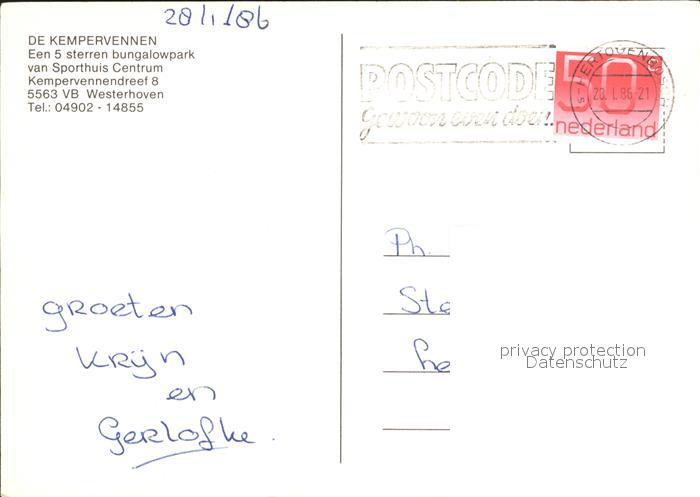 28/1/86
DE KEMPERVENNEN
Een 5 sterren bungalowpark
van Sporthuis Centrum
Kempervennendreef 8
5563 VB Westerhoven
Tel.: 04902 - 14855
groeten
Krijn
en
Gerlofke.
POSTCODE
gewoon even doen.
50
nederland
28.I.86-21
Ph.
Ste
he
privacy protection
Datenschutz